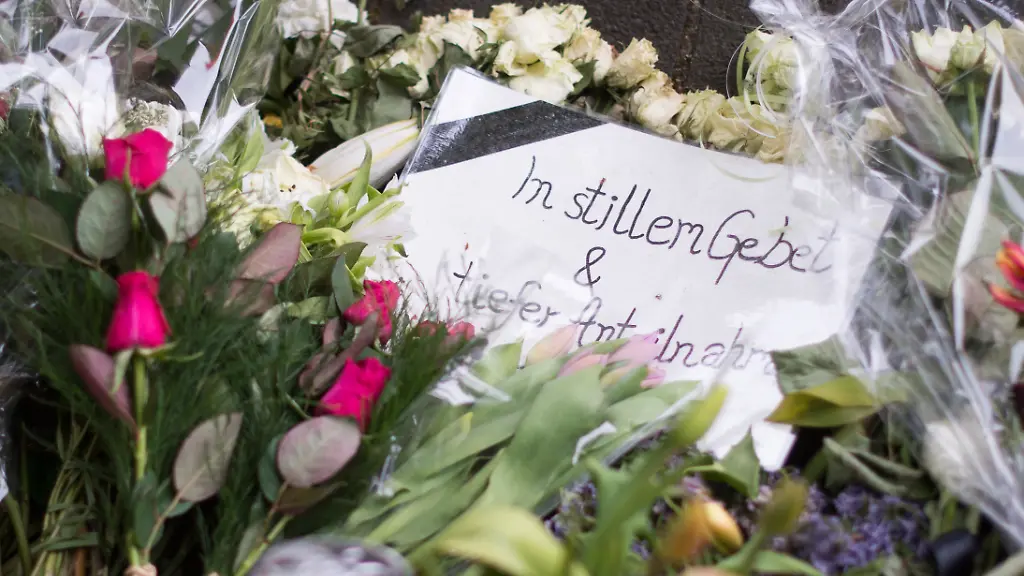 In stillem Gebet
&
tiefer Anteilnahm